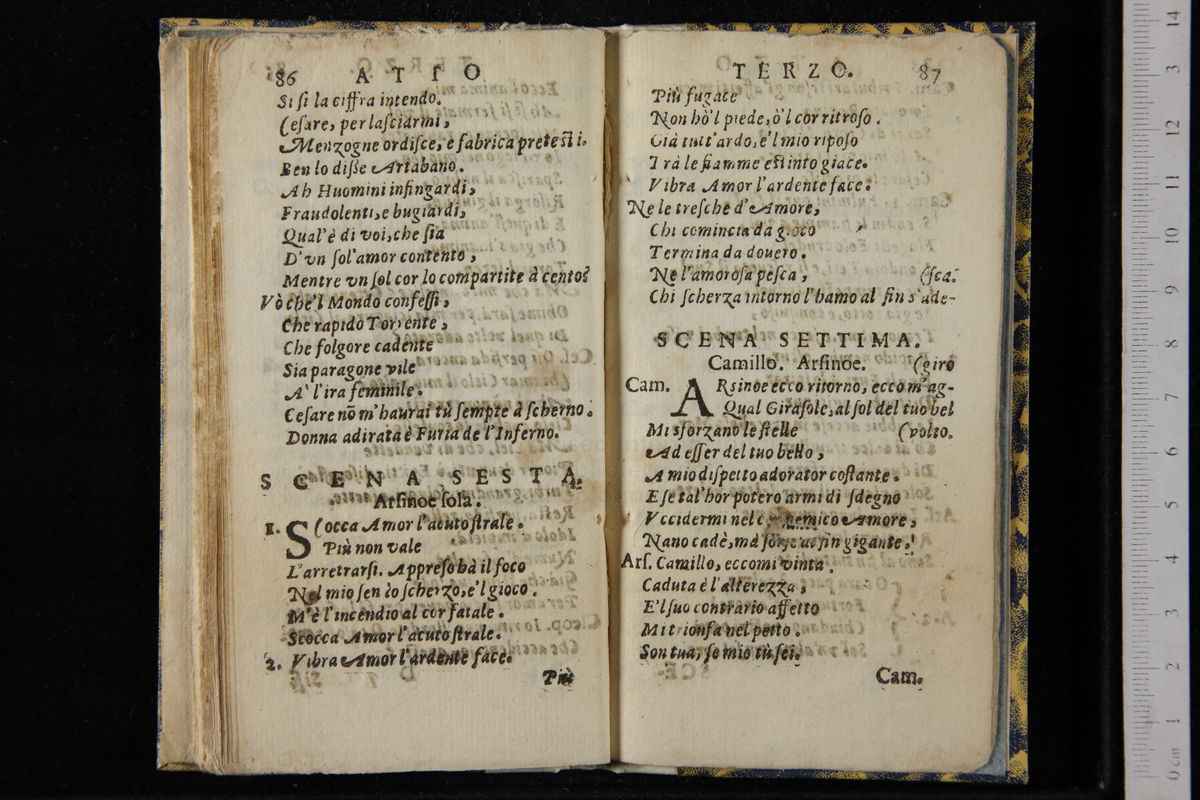 86 ATTO
Si sì la ciffra intendo.
Cesare, per lasciarmi,
Menzogne ordisce, e fabrica pretesti.
Ben lo disse Artabano.
Ah Huomini infingardi,
Fraudolenti, e bugiardi,
Qual'è di voi, che sia
D'vn sol'amor contento,
Mentre vn sol cor lo compartite à cento?
Vò che'l Mondo confessi,
Che rapido Torrente,
Che folgore cadente
Sia paragone vile
A' l'ira feminile.
Cesare nõ m'haurai tù sempte à scherno.
Donna adirata è Furia de l'Inferno.
SCENA SESTA.
Arsinoe sola.
1. SCocca Amor l'acuto strale.
Più non vale
L'arretrarsi. Appreso hà il foco
Nel mio sen lo scherzo, e'l gioco.
M'è l'incendio al cor fatale.
Scocca Amor l'acuto strale.
2. Vibra Amor l'ardente face.
Più
TERZO. 87
Più fugace
Non hò'l piede, ò'l cor ritroso.
Già tutt'ardo, e'l mio riposo
Trà le fiamme estinto giace.
Vibra Amor l'ardente face.
Ne le tresche d'Amore,
Chi comincia da gioco
Termina da douero.
Ne l'amorosa pesca, (sca.
Chi scherza intorno l'hamo al fin s'ade-
SCENA SETTIMA.
Camillo. Arsinoe. (giro
Cam. ARsinoe ecco ritorno, ecco m'ag-
Qual Girasole, al sol del tuo bel
Mi sforzano le stelle (volto.
Ad esser del tuo bello,
A mio dispetto adorator costante.
E se tal'hor potero armi di sdegno
Vccidermi nel nemico Amore,
Nano cadè, mà sorse al fin gigante.
Ars. Camillo, eccomi vinta.
Caduta è l'alterezza,
E'l suo contrario affetto
Mi trionfa nel petto.
Son tua, se mio tù sei.
Cam.